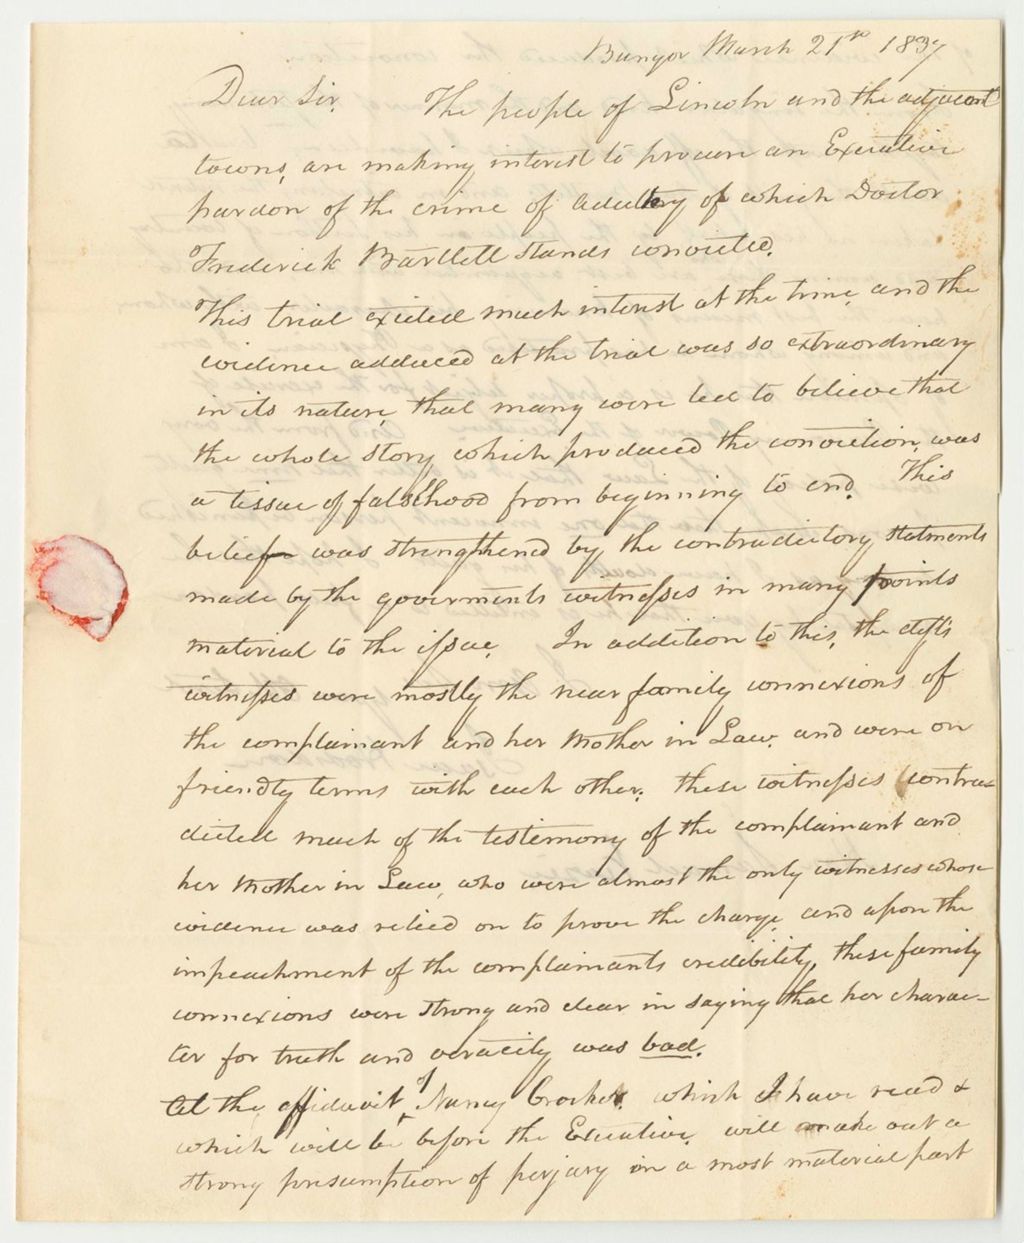 Bangor March 21st 1837
Dear Sir. The people of Lincoln and the adjacent
towns, are making interest to procure an Executive
pardon of the crime of adultery of which Doctor
Frederick Bartlett stands convicted.
This trial excited much interest at the time, and the
evidence adduced at the trial was so extraordinary
in its nature, that many were led to believe that
the whole story which produced the conviction, was
a tissue of falsehood from beginning to end. This
belief was strengthened by the contradictory statments
made by the goverments witnesses in many points
material to the issue. In addition to this, the defts
witnesses were mostly the near family connexions of
the complainant and her Mother in Law, and were on
friendly terms with each other. these witnesses contra-
dicted much of the testimony of the complainant and
her Mother in Law, who were almost the only witnesses whose
evidence was relied on to prove the charge, and upon the
impeachment of the complainants credibility, these family
connexions were strong and clear in saying that her charac-
ter for truth and veracity was bad.
the affidavit of Nancy Crocker, which I have read &
which will be before the Executive, will make out a
strong presumption of perjury in a most material part